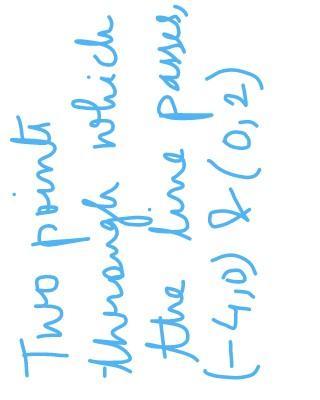 Two points
through which
the line passes,
(-4,0) & (0,2)